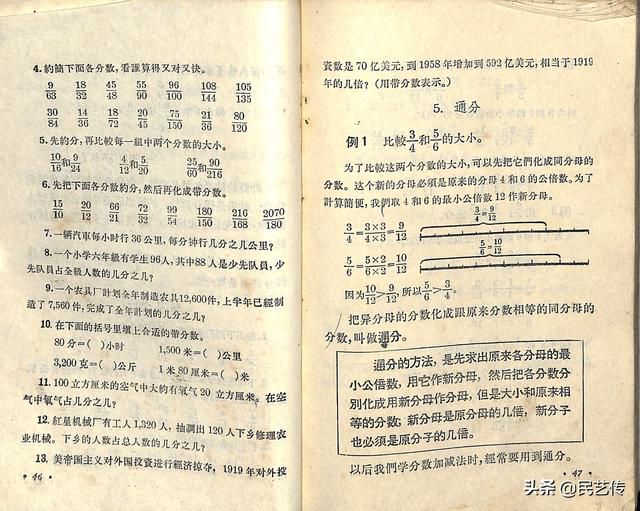 4. 約簡下面各分数,看誰算得又对又快。
9/63 18/32 45/48 55/90 96/100 108/144 105/135
30/84 14/36 18/72 20/45 75/150 21/36 80/120
5. 先約分,再比較每一組中两个分数的大小。
10/16和9/24 4/12和5/20 25/60和90/216
6. 先把下面各分数約分,然后再化成带分数。
15/10 20/12 66/21 72/32 99/54 180/150 216/168 2070/180
7. 一辆汽車每小时行36公里,每分钟行几分之几公里?
8. 一个小学六年級有学生96人,其中88人是少先队員,少
先队員占全級人数的几分之几?
9. 一个农具厂計划全年制造农具12,600件,上半年已經制
造了7,560件,完成了全年計划的几分之几?
10. 在下面的括号里填上合适的带分数。
80分=( )小时 1,500米=( )公里
3,200克=( )公斤 1米80厘米=( )米
11. 100立方厘米的空气中大約有氧气20立方厘米。在空
气中氧气占几分之几?
12. 紅星机械厂有工人1,320人,抽調出120人下乡修理农
业机械。下乡的人数占总人数的几分之几?
13. 美帝国主义对外国投資进行經济掠夺,1919年对外投
· 46 ·
資数是70亿美元,到1958年增加到592亿美元,相当于1919
年的几倍?(用带分数表示。)
5. 通分
例1 比較3/4和5/6的大小。
为了比較这两个分数的大小,可以先把它們化成同分母的
分数。这个新的分母必須是原来的分母4和6的公倍数。为了
計算簡便,我們取4和6的最小公倍数12作新分母。
3/4=9/12
3/4=3×3/4×3=9/12
5/6=10/12
5/6=5×2/6×2=10/12
因为10/12>9/12,所以5/6>3/4。
把异分母的分数化成跟原来分数相等的同分母的
分数,叫做通分。
通分的方法,是先求出原来各分母的最
小公倍数,用它作新分母,然后把各分数分
別化成用新分母作分母,但是大小和原来相
等的分数;新分母是原分母的几倍,新分子
也必須是原分子的几倍。
以后我們学分数加减法时,經常要用到通分。
· 47 ·
头条 @民艺传